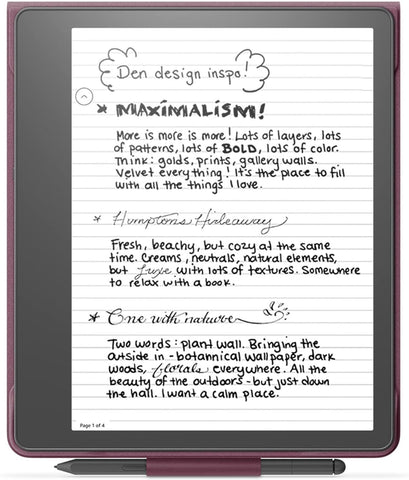 Den design inspo!
* MAXIMALISM!
More is more is more! Lots of layers, lots
of patterns, lots of BOLD, lots of color.
Think: golds, prints, gallery walls.
Velvet everything! It's the place to fill
with all the things I love.
* Humptons Hideaway
Fresh, beachy, but cozy at the same
time. Creams, neutrals, natural elements,
but luxe with lots of textures. Somewhere
to relax with a book.
* One with nature
Two words: plant wall. Bringing the
outside in - botannical wallpaper, dark
woods, florals everywhere. All the
beauty of the outdoors - but just down
the hall. I want a calm place.
Page 1 of 4